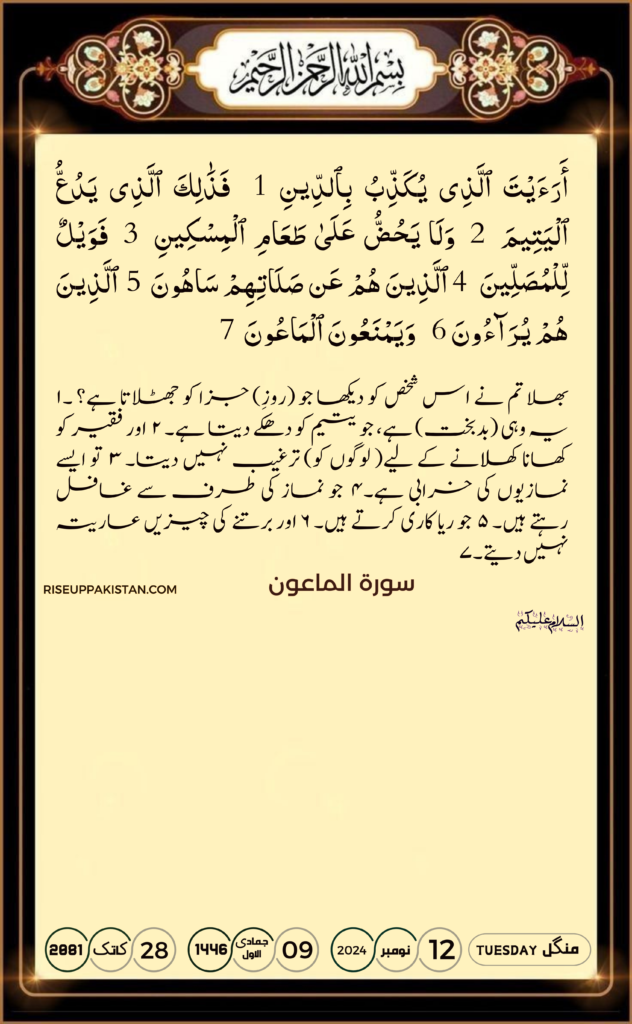 بسم الله الرحمن الرحيم
أَرَءَيْتَ ٱلَّذِى يُكَذِّبُ بِٱلدِّينِ 1 فَذَٰلِكَ ٱلَّذِى يَدُعُّ
ٱلْيَتِيمَ 2 وَلَا يَحُضُّ عَلَىٰ طَعَامِ ٱلْمِسْكِينِ 3 فَوَيْلٌ
لِّلْمُصَلِّينَ 4 ٱلَّذِينَ هُمْ عَن صَلَاتِهِمْ سَاهُونَ 5 ٱلَّذِينَ
هُمْ يُرَآءُونَ 6 وَيَمْنَعُونَ ٱلْمَاعُونَ 7
بھلا تم نے اس شخص کو دیکھا جو (روزِ) جزا کو جھٹلاتا ہے؟ ۔۱
یہ وہی (بدبخت) ہے، جو یتیم کو دھکے دیتا ہے۔ ۲ اور فقیر کو
کھانا کھلانے کے لیے( لوگوں کو) ترغیب نہیں دیتا۔ ۳ تو ایسے
نمازیوں کی خرابی ہے۔۴ جو نماز کی طرف سے غافل
رہتے ہیں۔ ۵ جو ریا کاری کرتے ہیں۔ ۶ اور برتنے کی چیزیں عاریتہ
نہیں دیتے۔۷
سورة الماعون
RISEUPPAKISTAN.COM
السلام علیکم
منگل TUESDAY 12 نومبر 2024 09 جمادی الاول 1446 28 کاتک 2081